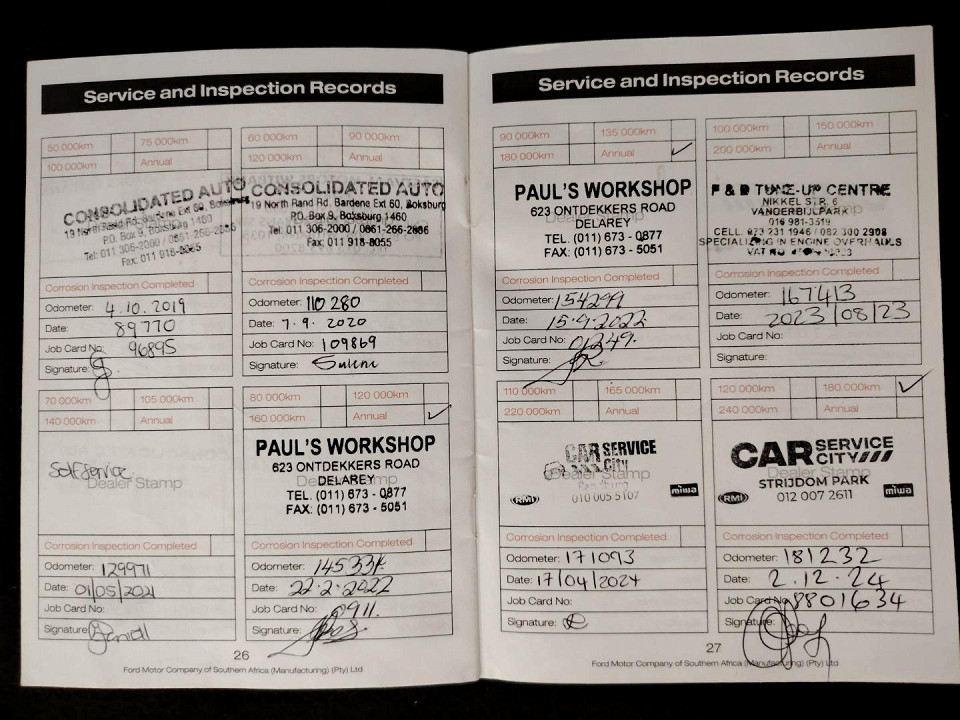 Service and Inspection Records
50 000km 75 000km
100 000km Annual
CONSOLIDATED AUTO
19 North Rand Rd. Bardene Ext 60, Boksburg
P.O. Box 9, Boksburg 1460
Tel: 011 306-2000 / 0861-266-2886
Fax: 011 918-8055
Corrosion Inspection Completed
Odometer: 4.10.2019
Date: 89770
Job Card No: 96895
Signature:
60 000km 90 000km
120 000km Annual
CONSOLIDATED AUTO
19 North Rand Rd. Bardene Ext 60, Boksburg
P.O. Box 9, Boksburg 1460
Tel: 011 306-2000 / 0861-266-2886
Fax: 011 918-8055
Corrosion Inspection Completed
Odometer: 110 280
Date: 7.9.2020
Job Card No: 109869
Signature:
70 000km 105 000km
140 000km Annual
Self service
Dealer Stamp
Corrosion Inspection Completed
Odometer: 129971
Date: 01/05/2021
Job Card No:
Signature:
80 000km 120 000km
160 000km Annual ✓
PAUL'S WORKSHOP
623 ONTDEKKERS ROAD
DELAREY
TEL. (011) 673 - 0877
FAX: (011) 673 - 5051
Corrosion Inspection Completed
Odometer:
Date: 22.2.2022
Job Card No: 0911.
Signature:
26
Ford Motor Company of Southern Africa (Manufacturing) (Pty) Ltd
Service and Inspection Records
90 000km 135 000km
180 000km Annual ✓
PAUL'S WORKSHOP
623 ONTDEKKERS ROAD
DELAREY
TEL. (011) 673 - 0877
FAX: (011) 673 - 5051
Corrosion Inspection Completed
Odometer: 154299
Date: 15.9.2022
Job Card No: 01249.
Signature:
100 000km 150 000km
200 000km Annual
TUNE-UP CENTRE
NIKKEL STR. 6
VANDERBIJLPARK
016 981-3519
CELL. 073 231 1946 / 082 300 2908
SPECIALIZING IN ENGINE OVERHAULS
VAT NO
Corrosion Inspection Completed
Odometer: 167413
Date: 2023/08/23
Job Card No:
Signature:
110 000km 165 000km
220 000km Annual
CAR SERVICE
CITY
Dealer Stamp
010 005 5107
RMI miwa
Corrosion Inspection Completed
Odometer: 171093
Date: 17/04/2024
Job Card No:
Signature:
120 000km 180 000km ✓
240 000km Annual
CAR SERVICE
CITY
Dealer Stamp
STRIJDOM PARK
012 007 2611
RMI miwa
Corrosion Inspection Completed
Odometer: 181232
Date: 2.12.24
Job Card No: 8801634
Signature:
27
Ford Motor Company of Southern Africa (Manufacturing) (Pty) Ltd